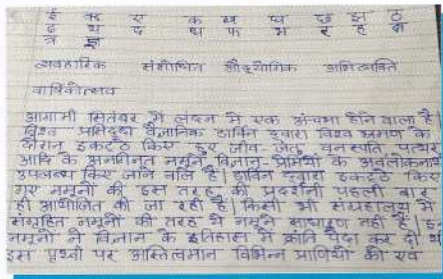 ई ऋ ए क ख घ छ झ ठ
ढ थ द ध फ भ ह क्ष
त्र ज्ञ
व्यवहारिक संशोधित औद्योगिक अभिव्यक्ति
वार्षिकोत्सव
आगामी सितंबर में लंदन में एक अचंभा होने वाला है|
विश्व प्रसिद्ध वैज्ञानिक डार्विन द्वारा विश्व भ्रमण के
दौरान इकट्ठे किए हुए जीव जंतु वनस्पति पत्थर
आदि के अनगिनत नमूने विज्ञान प्रेमियों के अवलोकनार्थ
उपलब्ध किए जाने वाले है| डार्विन द्वारा इकट्ठे किए
गए नमूनों की इस तरह की प्रदर्शनी पहली बार
ही आयोजित की जा रही है| किसी भी संग्रहालय में
संग्रहित नमूनों की तरह ये नमूने साधारण नहीं है|
नमूनों ने विज्ञान के इतिहास में क्रांति पैदा कर दी थी
इस पृथ्वी पर अस्तित्वमान विभिन्न प्राणियों की एवं